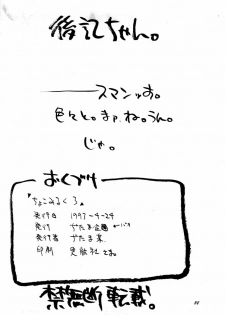 後記ちゃん。
――スマンッす。
色々と。まァ、ね。うん。
じゃ。
おくづけ
『ちょこみるく3』
発行日 1997-4-29
発行 がたま企画
発行者 がたま某
印刷
禁無断転載。